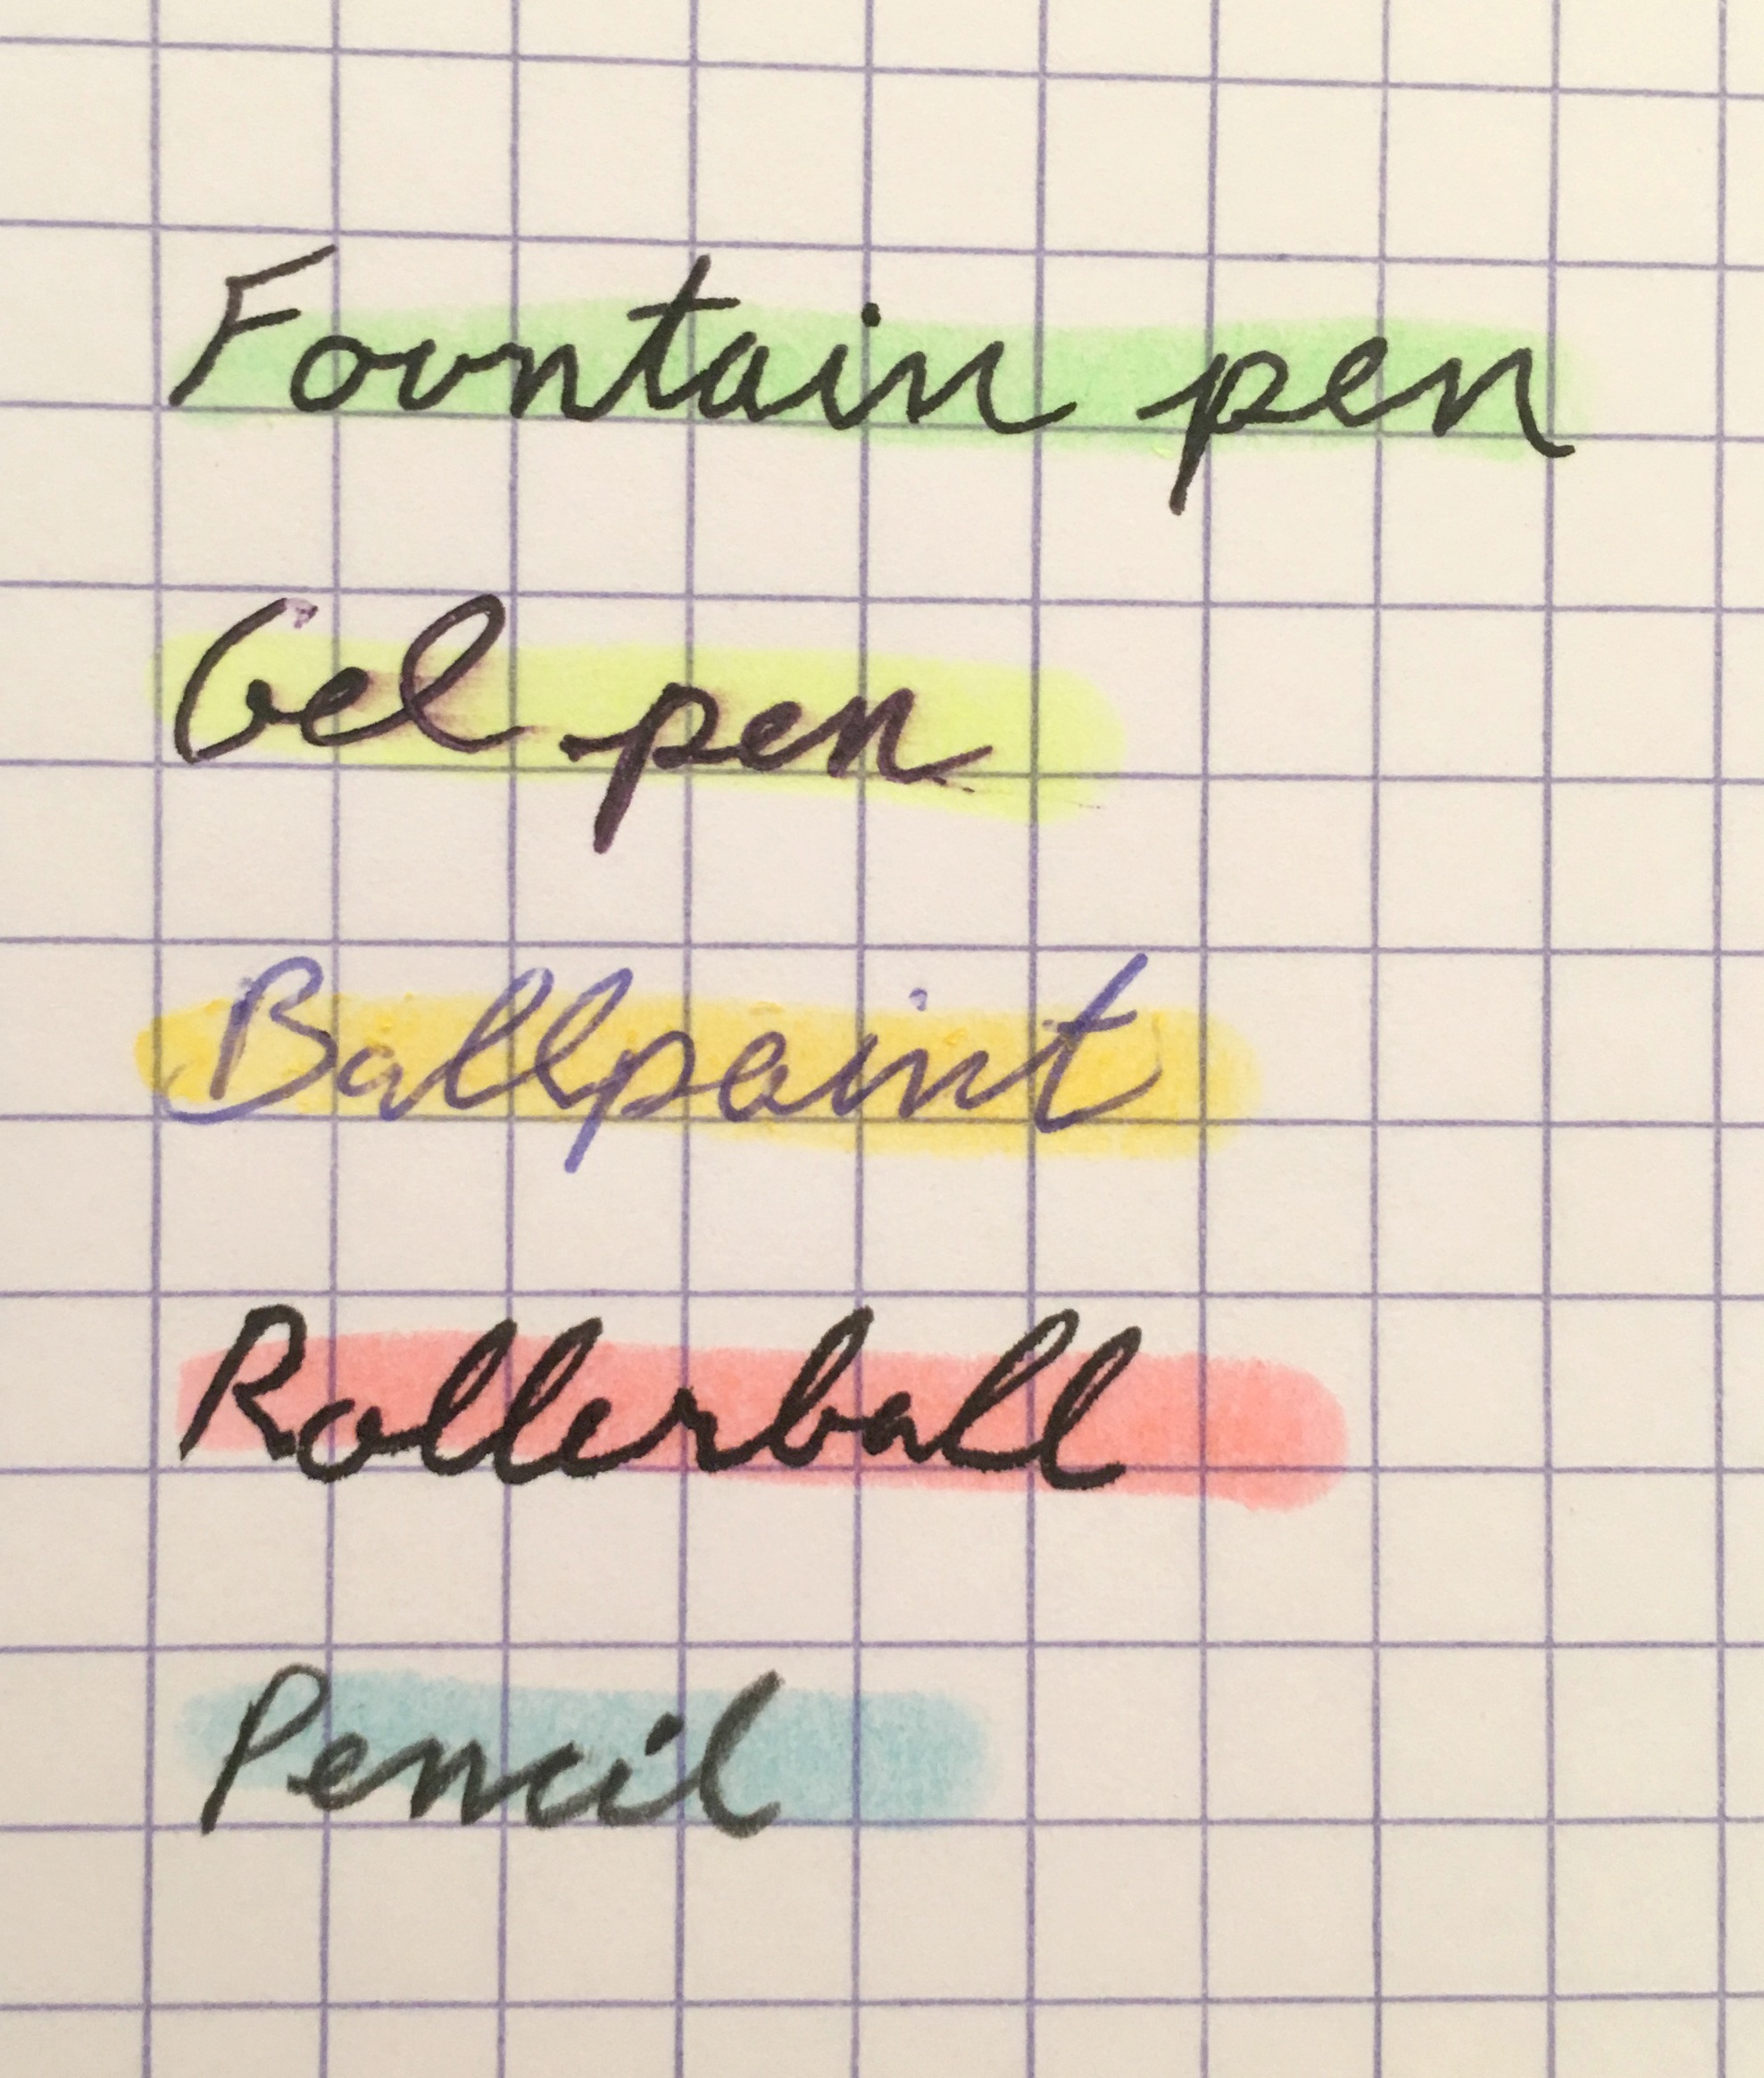 Fountain pen
Gel pen
Ballpoint
Rollerball
Pencil